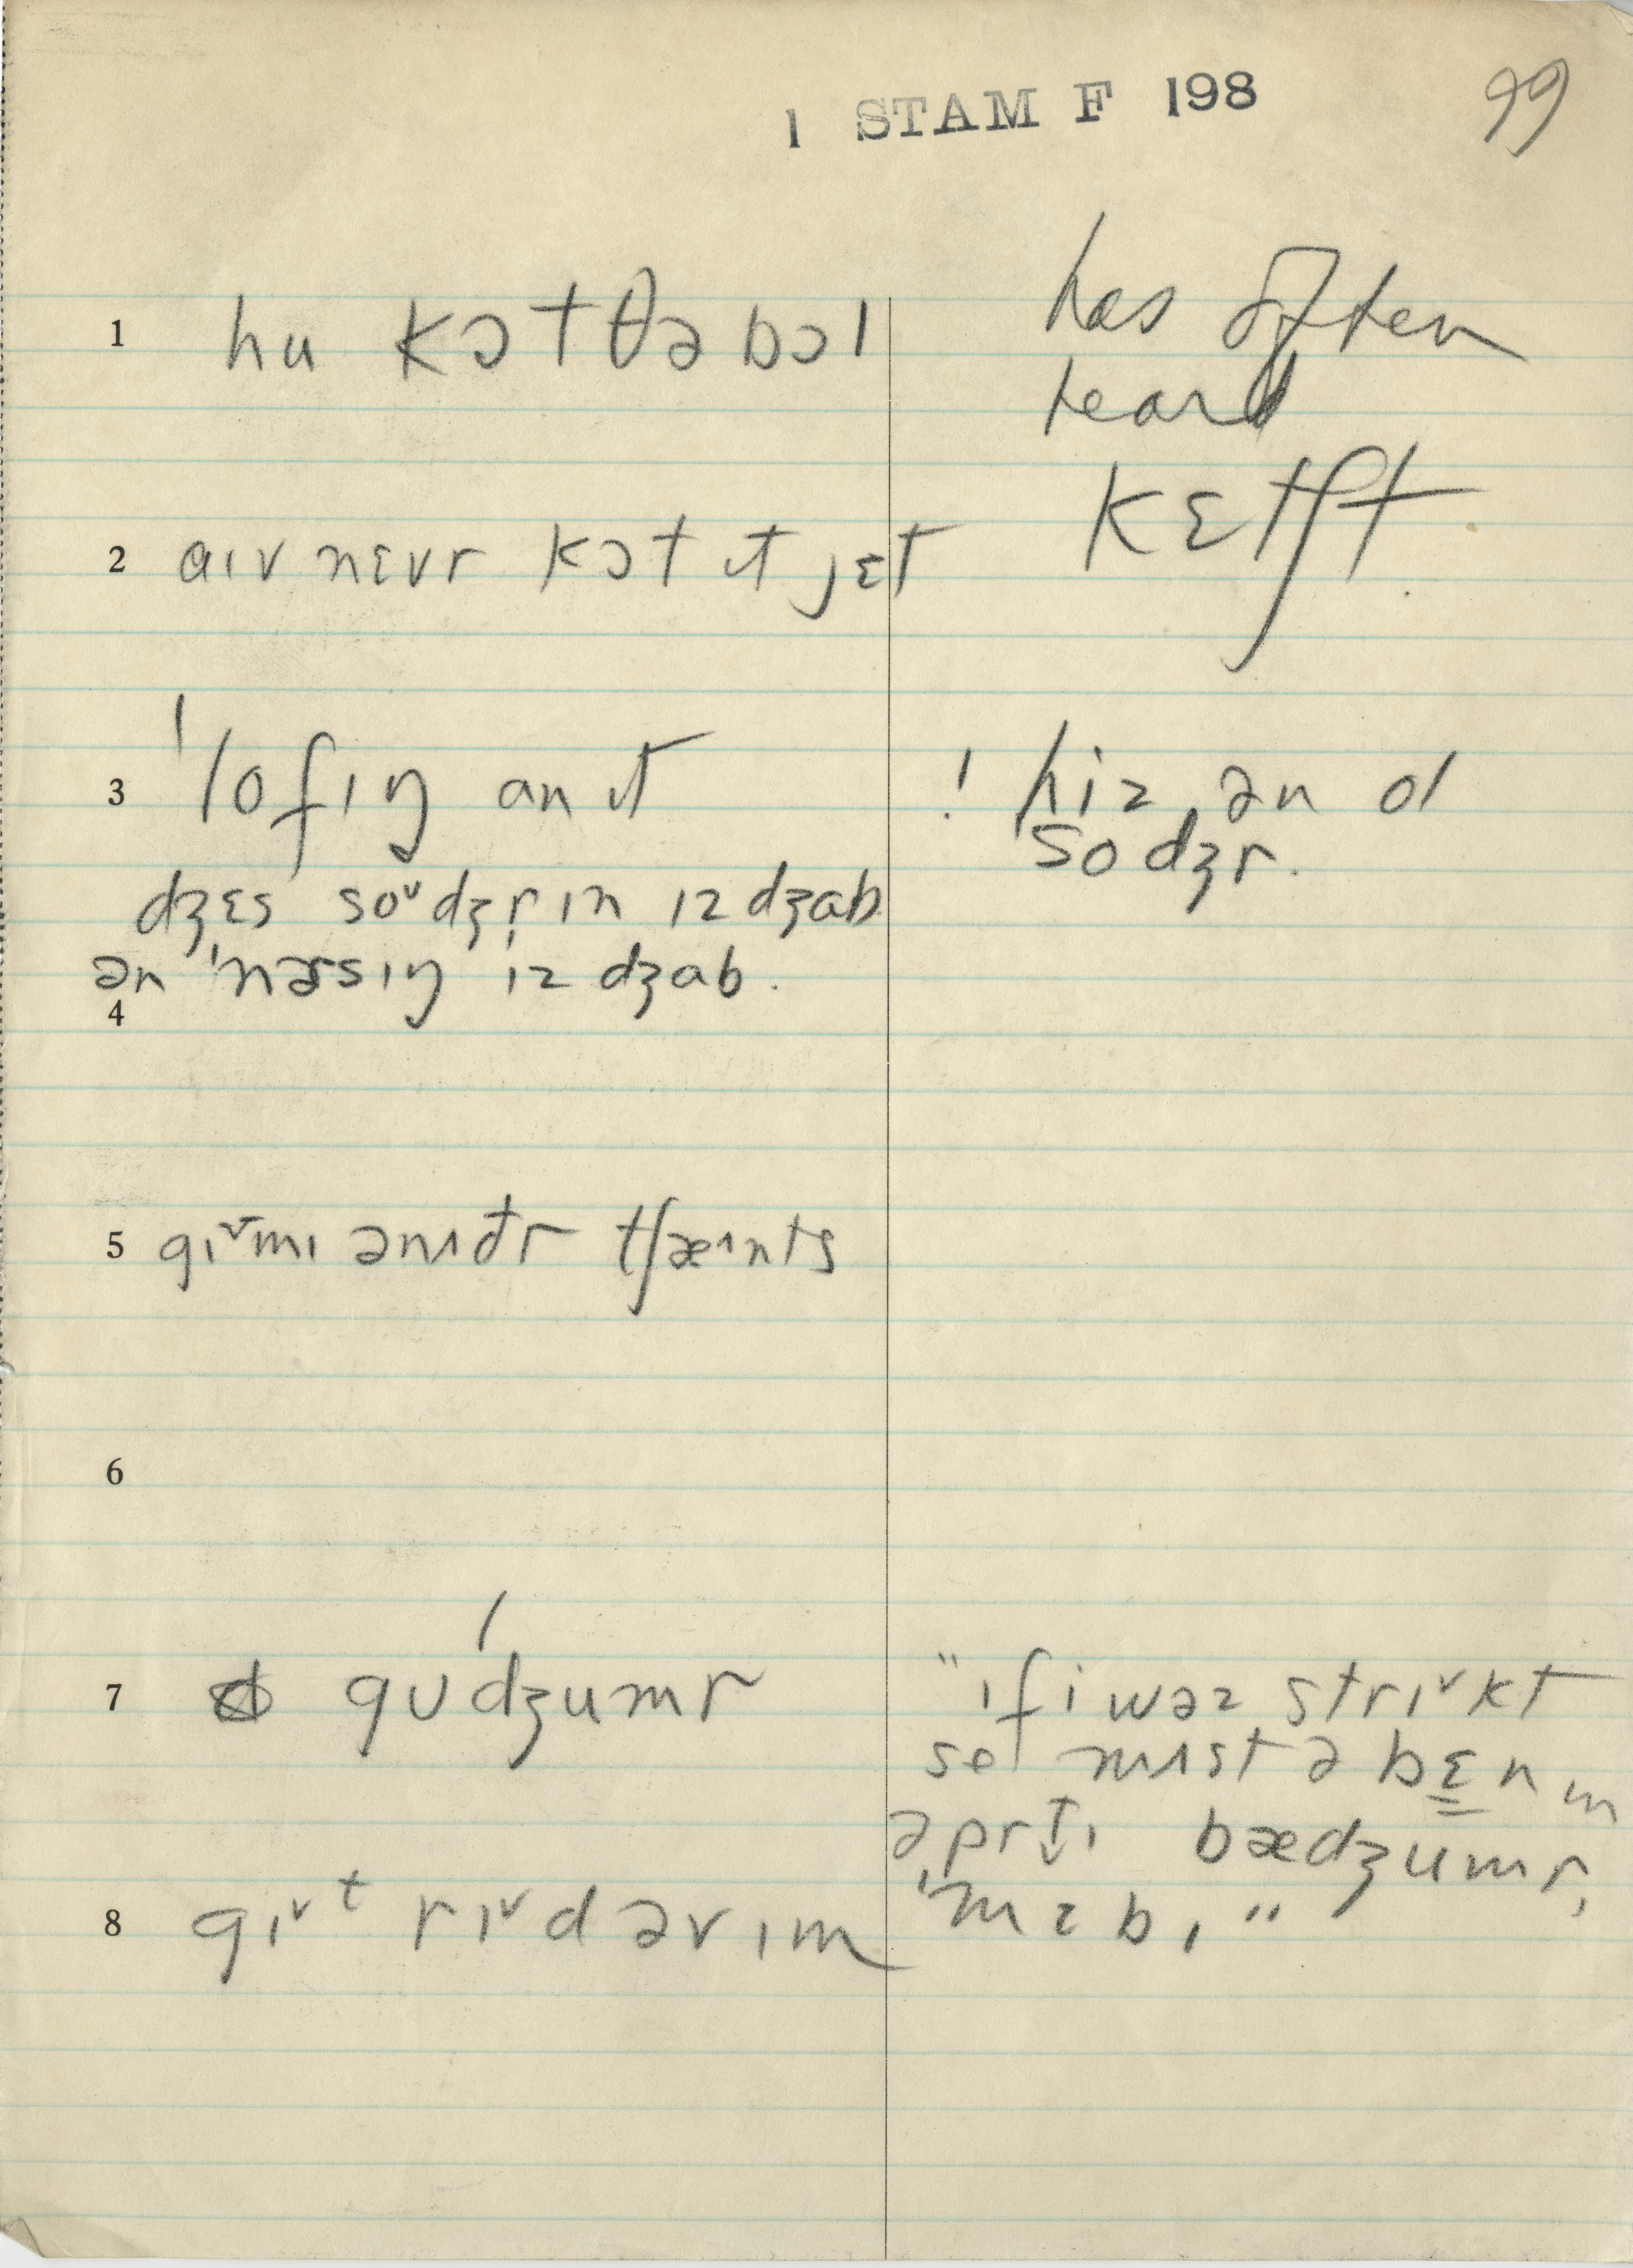 1 STAM F 198
99
1 hu kɔt θə bɔl
has often
heard
kɛtʃt
2 aɪv nɛvr kɔt ɪt jɛt
3 ˈlofɪŋ an ɪt
! hiz ən ol
sodʒr.
dʒɛs soᵛdʒrɪn ɪz dʒab
ən ˈnərsɪŋ ɪz dʒab.
4
5 gɪᵛmɪ ənɪðr tʃæᶺnts
6
7 gʊˈdʒumr
"ɪf i wəz strɪᵛkt
mɪst ə bɛn
əprtɪ bædʒumr,
8 gɪᵛt rɪᵛd əv ɪm